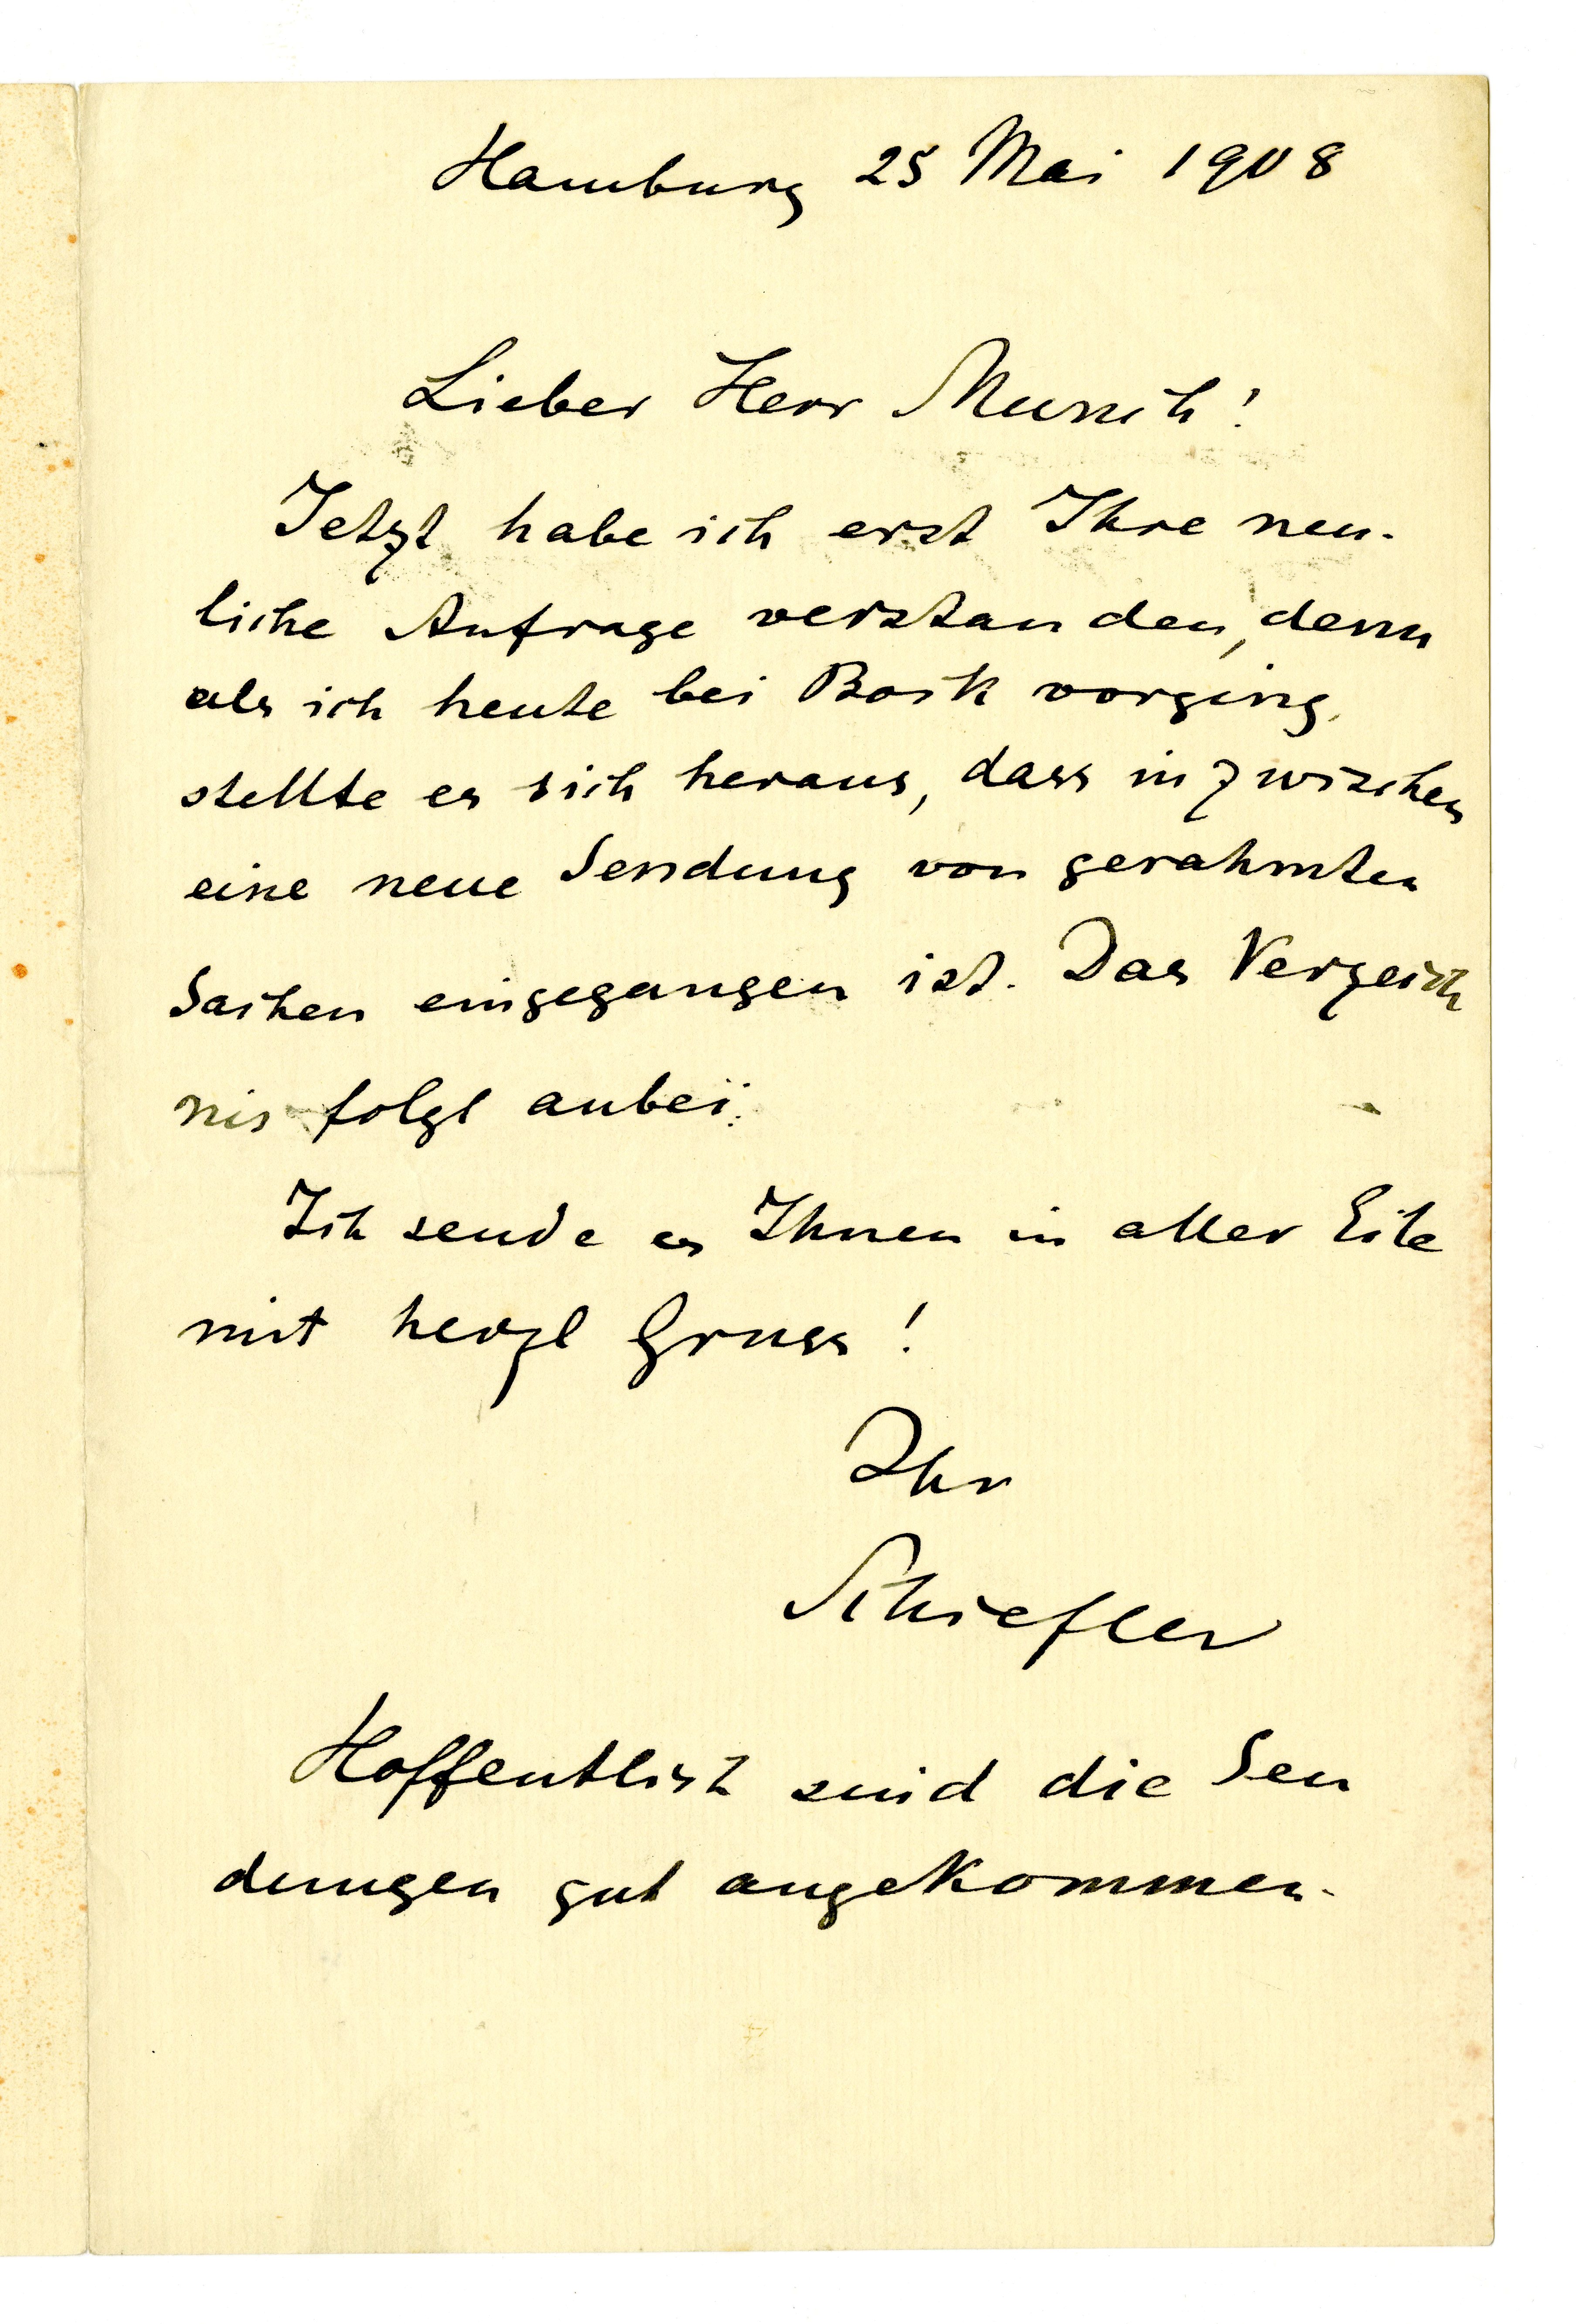 Hamburg 25 Mai 1908
Lieber Herr Munch!
Jetzt habe ich erst Ihre neu-
liche Anfrage verstanden, denn
als ich heute bei Bock vorging,
stellte es sich heraus, dass inzwischen
eine neue Sendung von gerahmten
Sachen eingegangen ist. Das Verzeich
nis folgt anbei.
Ich sende es Ihnen in aller Eile
mit herzl Gruss!
Ihr
Schiefler
Hoffentlich sind die Sen
dungen gut angekommen.